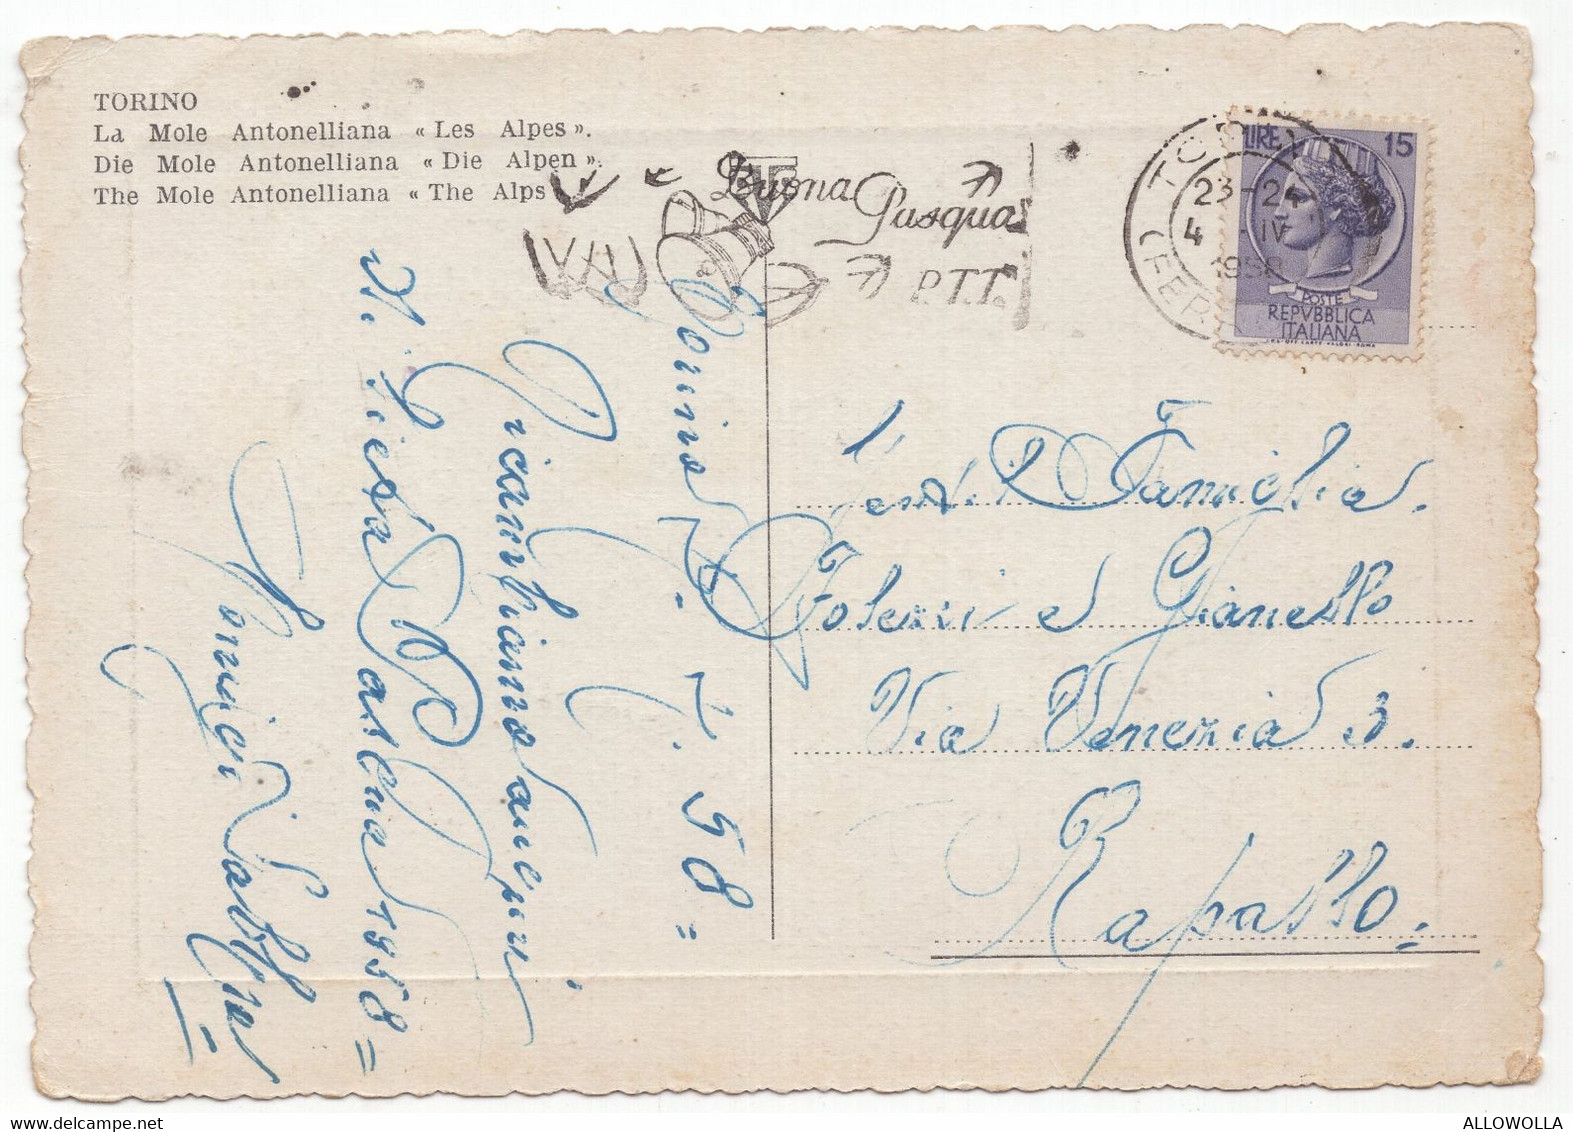 TORINO
La Mole Antonelliana « Les Alpes ».
Die Mole Antonelliana « Die Alpen ».
The Mole Antonelliana « The Alps
Buona
Pasqua
P.T.T.
TORINO
FERR
23-24
4 -IV
1958
LIRE 15
POSTE
REPVBBLICA
ITALIANA
Torino 4. 58=
Ricambiamo auguri
di lieta Pasqua 1958=
Gent. Famiglia
e Gianello
Via Venezia 3.
Rapallo=
delcampe.net
ALLOWOLLA